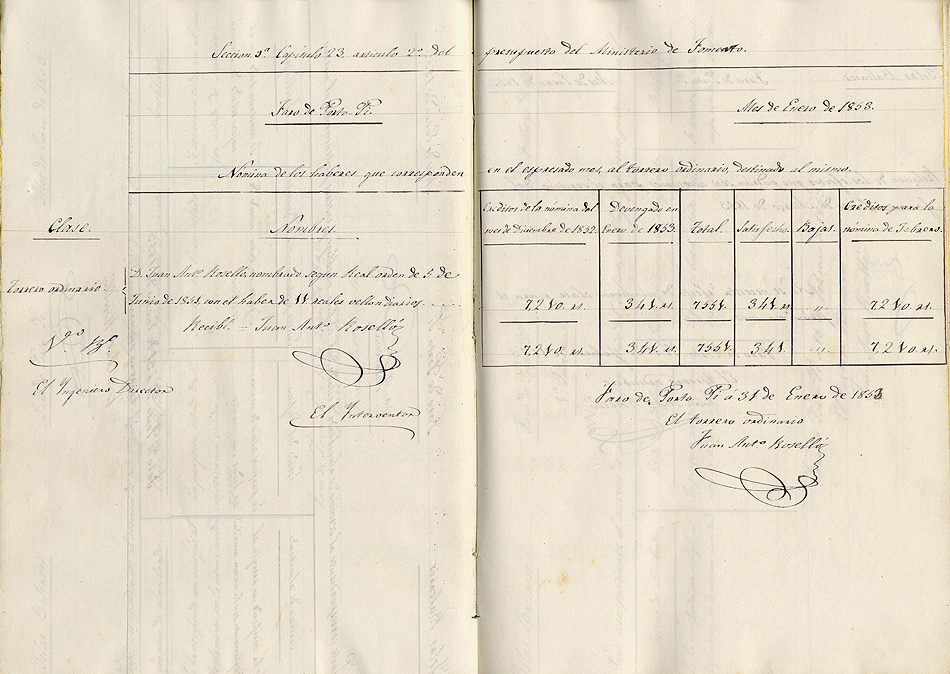 Seccion 9ª Capítulo 23, articulo 2º del presupuesto del Ministerio de Fomento.
Faro de Porto-Pi.
Mes de Enero de 1853.
Nómina de los haberes que corresponden en el espresado mes, al torrero ordinario, destinado al mismo.
Clase.
Nombres.
Créditos de la nómina del mes de Diciembre de 1852.
Devengado en Enero de 1853.
Total.
Satisfecho.
Bajas.
Créditos para la nómina de Febrero.
Torrero ordinario.
D. Juan Antº Roselló, nombrado segun Real orden de 5 de
Junio de 1851, con el haber de 11 reales vellon diarios.
7210. rs. 341 rs. 7551. 341 rs. ,, 7210. rs.
Recibí. = Juan Antº Roselló
7210. rs. 341. rs. 7551. 341. ,, 7210. rs.
Vº Bº
El Ingeniero Director
El Interventor
Faro de Porto Pi a 31 de Enero de 1853
El torrero ordinario
Juan Antº Roselló